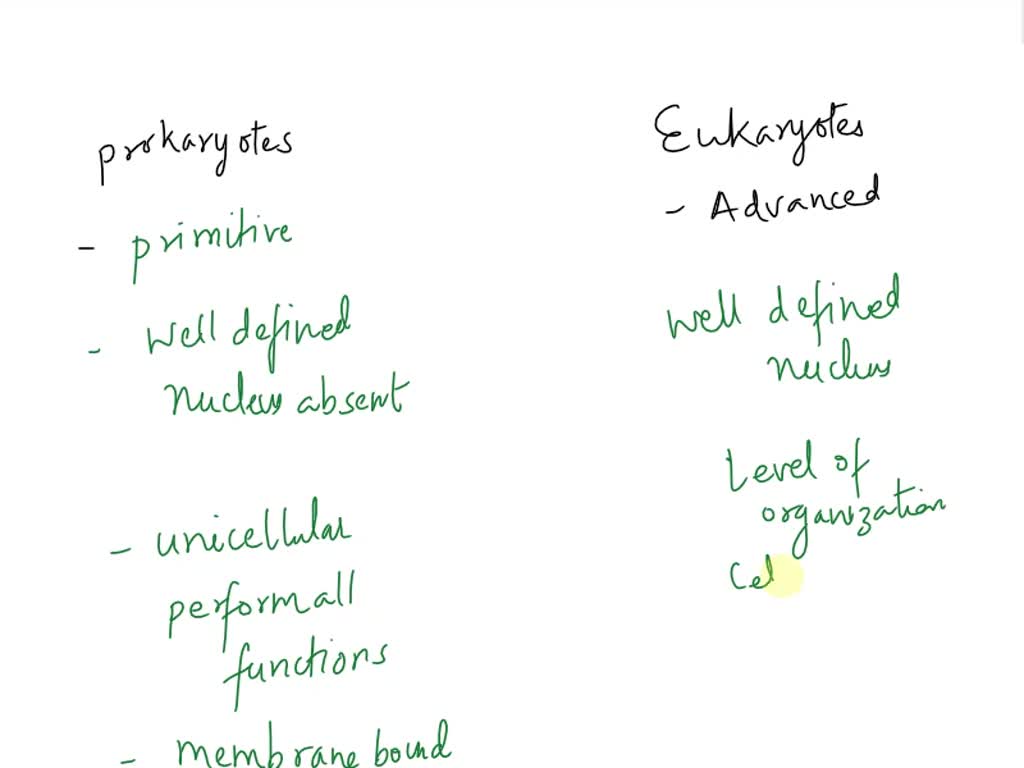 prokaryotes
- primitive
- well defined
nucleus absent
- unicellular
perform all
functions
- membrane bound
Eukaryotes
- Advanced
well defined
nucleus
Level of
organization
Cel